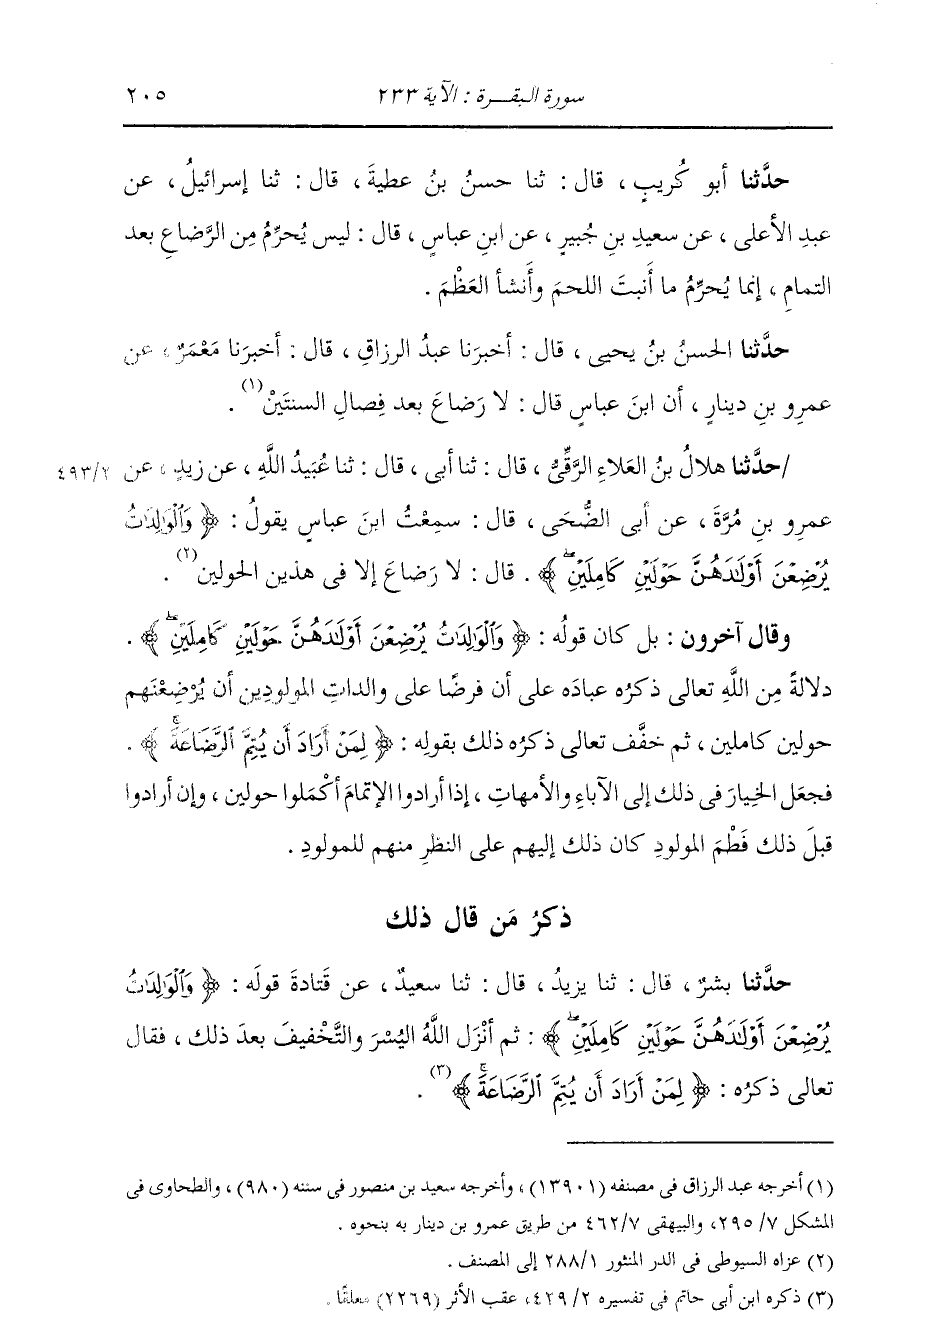 سورة البقـــرة : الآية ٢٣٣
٢٠٥
حدَّثنا أبو كُريبٍ ، قال : ثنا حسنُ بنُ عطيةَ ، قال : ثنا إسرائيلُ ، عن
عبدِ الأعلى ، عن سعيدِ بنِ جُبيرٍ ، عن ابنِ عباسٍ ، قال : ليس يُحرِّمُ مِن الرَّضاعِ بعد
التمامِ ، إنما يُحرِّمُ ما أَنبتَ اللحمَ وأَنشأ العَظْمَ .
حدَّثنا الحسنُ بنُ يحيى ، قال : أخبرَنا عبدُ الرزاقِ ، قال : أخبرَنا مَعْمَرٌ ، عن
عمرِو بنِ دينارٍ ، أن ابنَ عباسٍ قال : لا رَضاعَ بعد فِصالِ السنتَينْ (١) .
/حدَّثنا هلالُ بنُ العَلاءِ الرَّقِّىُّ ، قال : ثنا أبى ، قال : ثنا عُبَيدُ اللَّهِ ، عن زيدٍ ، عن ٤٩٣/٢
عمرِو بنِ مُرَّةَ ، عن أبى الضُّحَى ، قال : سمِعْتُ ابنَ عباسٍ يقولُ : ﴿ وَٱلْوَٰلِدَٰتُ
يُرْضِعْنَ أَوْلَٰدَهُنَّ حَوْلَيْنِ كَامِلَيْنِۖ ﴾ . قال : لا رَضاعَ إلا فى هذين الحولين (٢) .
وقال آخرون : بل كان قولُه : ﴿ وَٱلْوَٰلِدَٰتُ يُرْضِعْنَ أَوْلَٰدَهُنَّ حَوْلَيْنِ كَامِلَيْنِۖ ﴾ .
دلالةً مِن اللَّهِ تعالى ذكرُه عبادَه على أن فرضًا على والداتِ المولودِين أن يُرْضِعْنَهم
حولين كاملين ، ثم خفَّف تعالى ذكرُه ذلك بقولِه : ﴿ لِمَنْ أَرَادَ أَن يُتِمَّ ٱلرَّضَاعَةَۚ ﴾ .
فجعَل الخيارَ فى ذلك إلى الآباءِ والأمهاتِ ، إذا أرادوا الإتمامَ أكْمَلوا حولين ، وإن أرادوا
قبلَ ذلك فَطْمَ المولودِ كان ذلك إليهم على النظرِ منهم للمولودِ .
ذكرُ مَن قال ذلك
حدَّثنا بشرٌ ، قال : ثنا يزيدُ ، قال : ثنا سعيدٌ ، عن قَتادةَ قولَه : ﴿ وَٱلْوَٰلِدَٰتُ
يُرْضِعْنَ أَوْلَٰدَهُنَّ حَوْلَيْنِ كَامِلَيْنِۖ ﴾ : ثم أنْزَل اللَّهُ اليُسْرَ والتَّخْفيفَ بعدَ ذلك ، فقال
تعالى ذكرُه : ﴿ لِمَنْ أَرَادَ أَن يُتِمَّ ٱلرَّضَاعَةَۚ ﴾ (٣) .
(١) أخرجه عبد الرزاق فى مصنفه (١٣٩٠١) ، وأخرجه سعيد بن منصور فى سننه (٩٨٠) ، والطحاوى فى
المشكل ٧/ ٢٩٥، والبيهقى ٤٦٢/٧ من طريق عمرو بن دينار به بنحوه .
(٢) عزاه السيوطى فى الدر المنثور ٢٨٨/١ إلى المصنف .
(٣) ذكره ابن أبى حاتم فى تفسيره ٢/ ٤٢٩، عقب الأثر (٢٢٦٩) معلقًا .